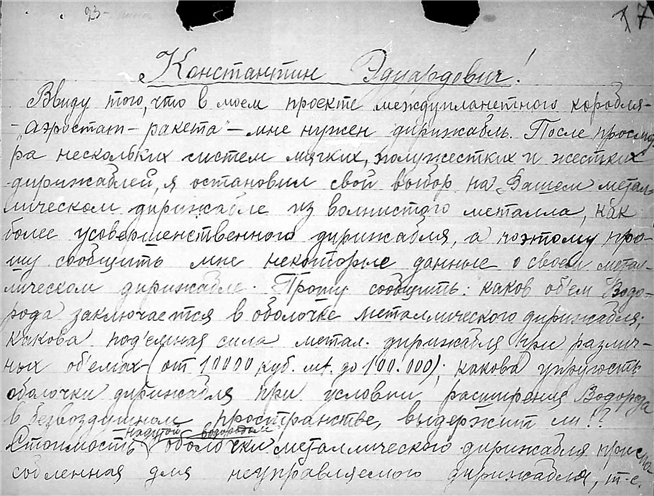 23-
17
Константин Эдуардович!
Ввиду того, что в моем проекте, междупланетного корабля-
-„аэростат-ракета"- мне нужен дирижабль. После просмот
ра нескольких систем мягких, полужестких и жестких
дирижаблей, я остановил свой выбор на Вашем метал
лическом дирижабле из волнистого металла, как
более усовершенственного дирижабля, а поэтому про-
шу сообщить мне некоторые данные о своем метал-
лическом дирижабле. Прошу сообщить: каков об'ем Водо-
рода заключается в оболочке металлического дирижабля;
какова под'емная сила метал. дирижабля при различ-
ных об'емах (от 10000 куб. мт. до 100.000); какова упругость
оболочки дирижабля при условии, расширения Водорода
в безвоздушном пространстве, выдержит ли??
надутой водородом
Стоимость оболочки металлического дирижабля приспо
собленная для неуправляемого дирижабля, т-е,